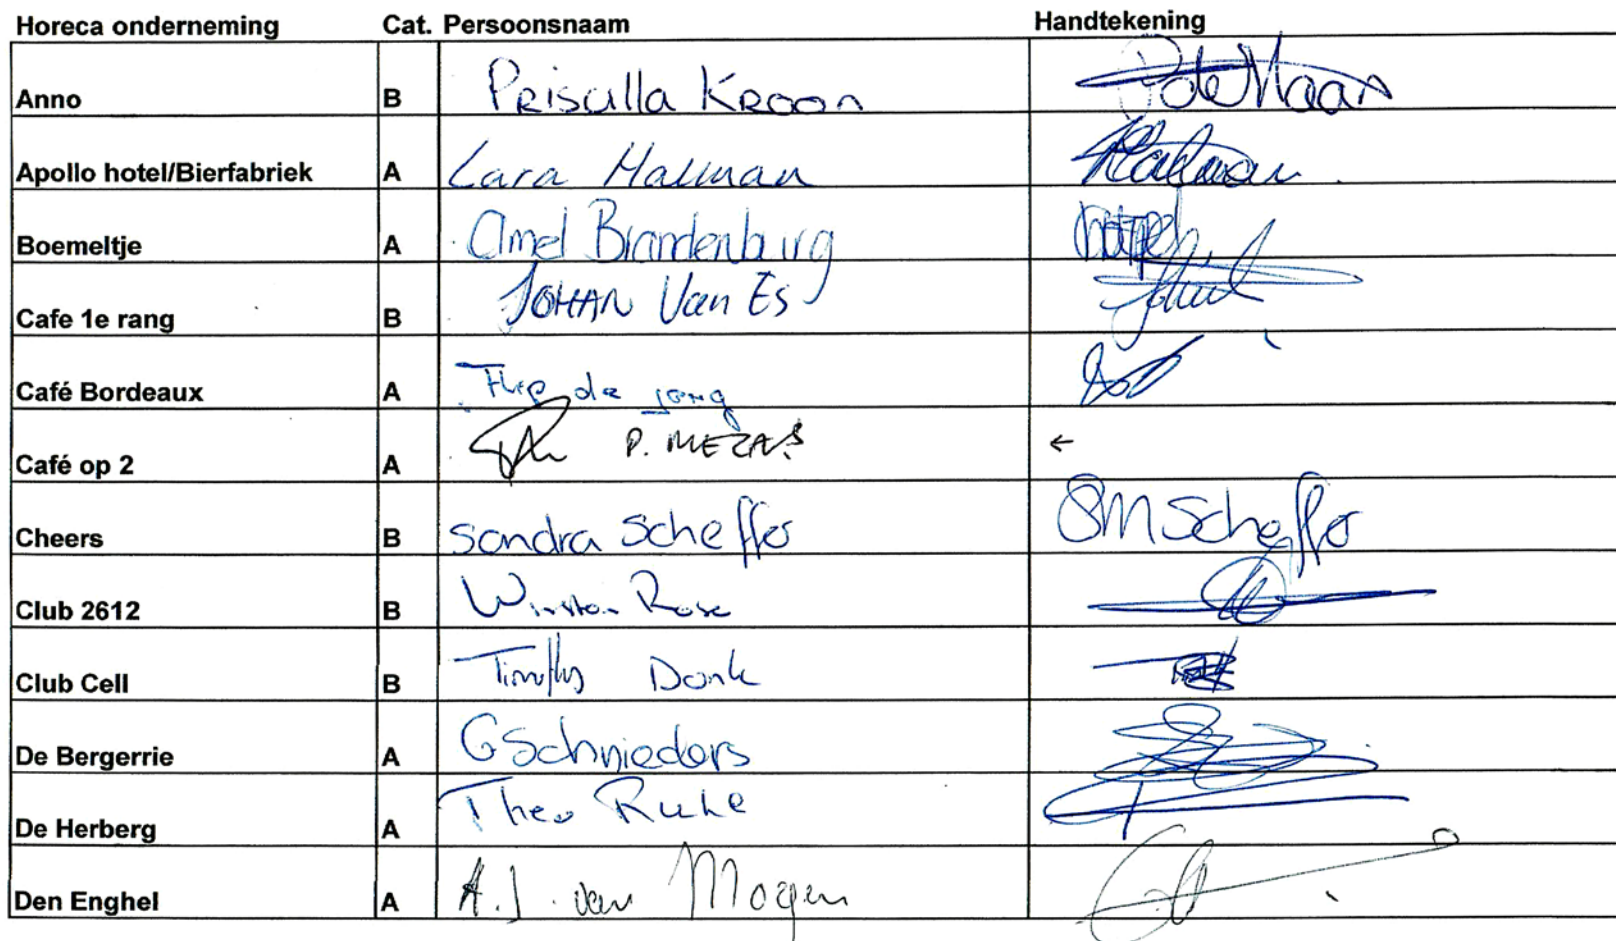 Horeca onderneming Cat. Persoonsnaam Handtekening
Anno B Priscilla Kroon
Apollo hotel/Bierfabriek A Lara Halman
Boemeltje A Amel Brandenburg
Cafe 1e rang B JOHAN Van Es
Café Bordeaux A Flip de jong
Café op 2 A P. MEZAS ←
Cheers B Sandra Scheffer SM Scheffer
Club 2612 B Winston Rose
Club Cell B Timothy Donk
De Bergerrie A G Schnieders
De Herberg A Theo Ruhe
Den Enghel A A.J. van